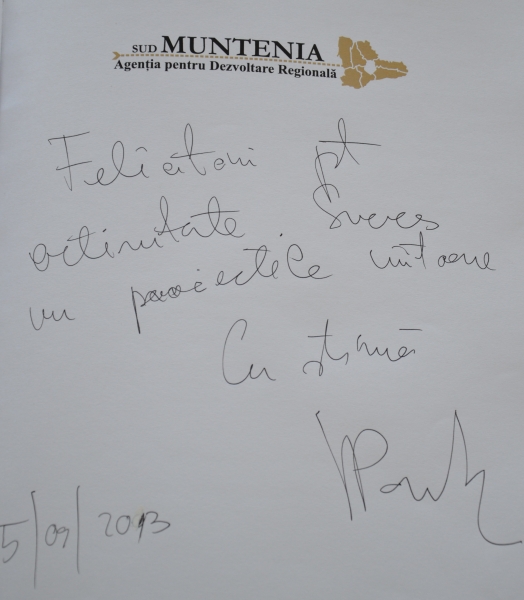 SUD MUNTENIA
Agenția pentru Dezvoltare Regională
Felicitări pt
activitate. Succes
în proiectele viitoare
Cu stimă
5/09/2013